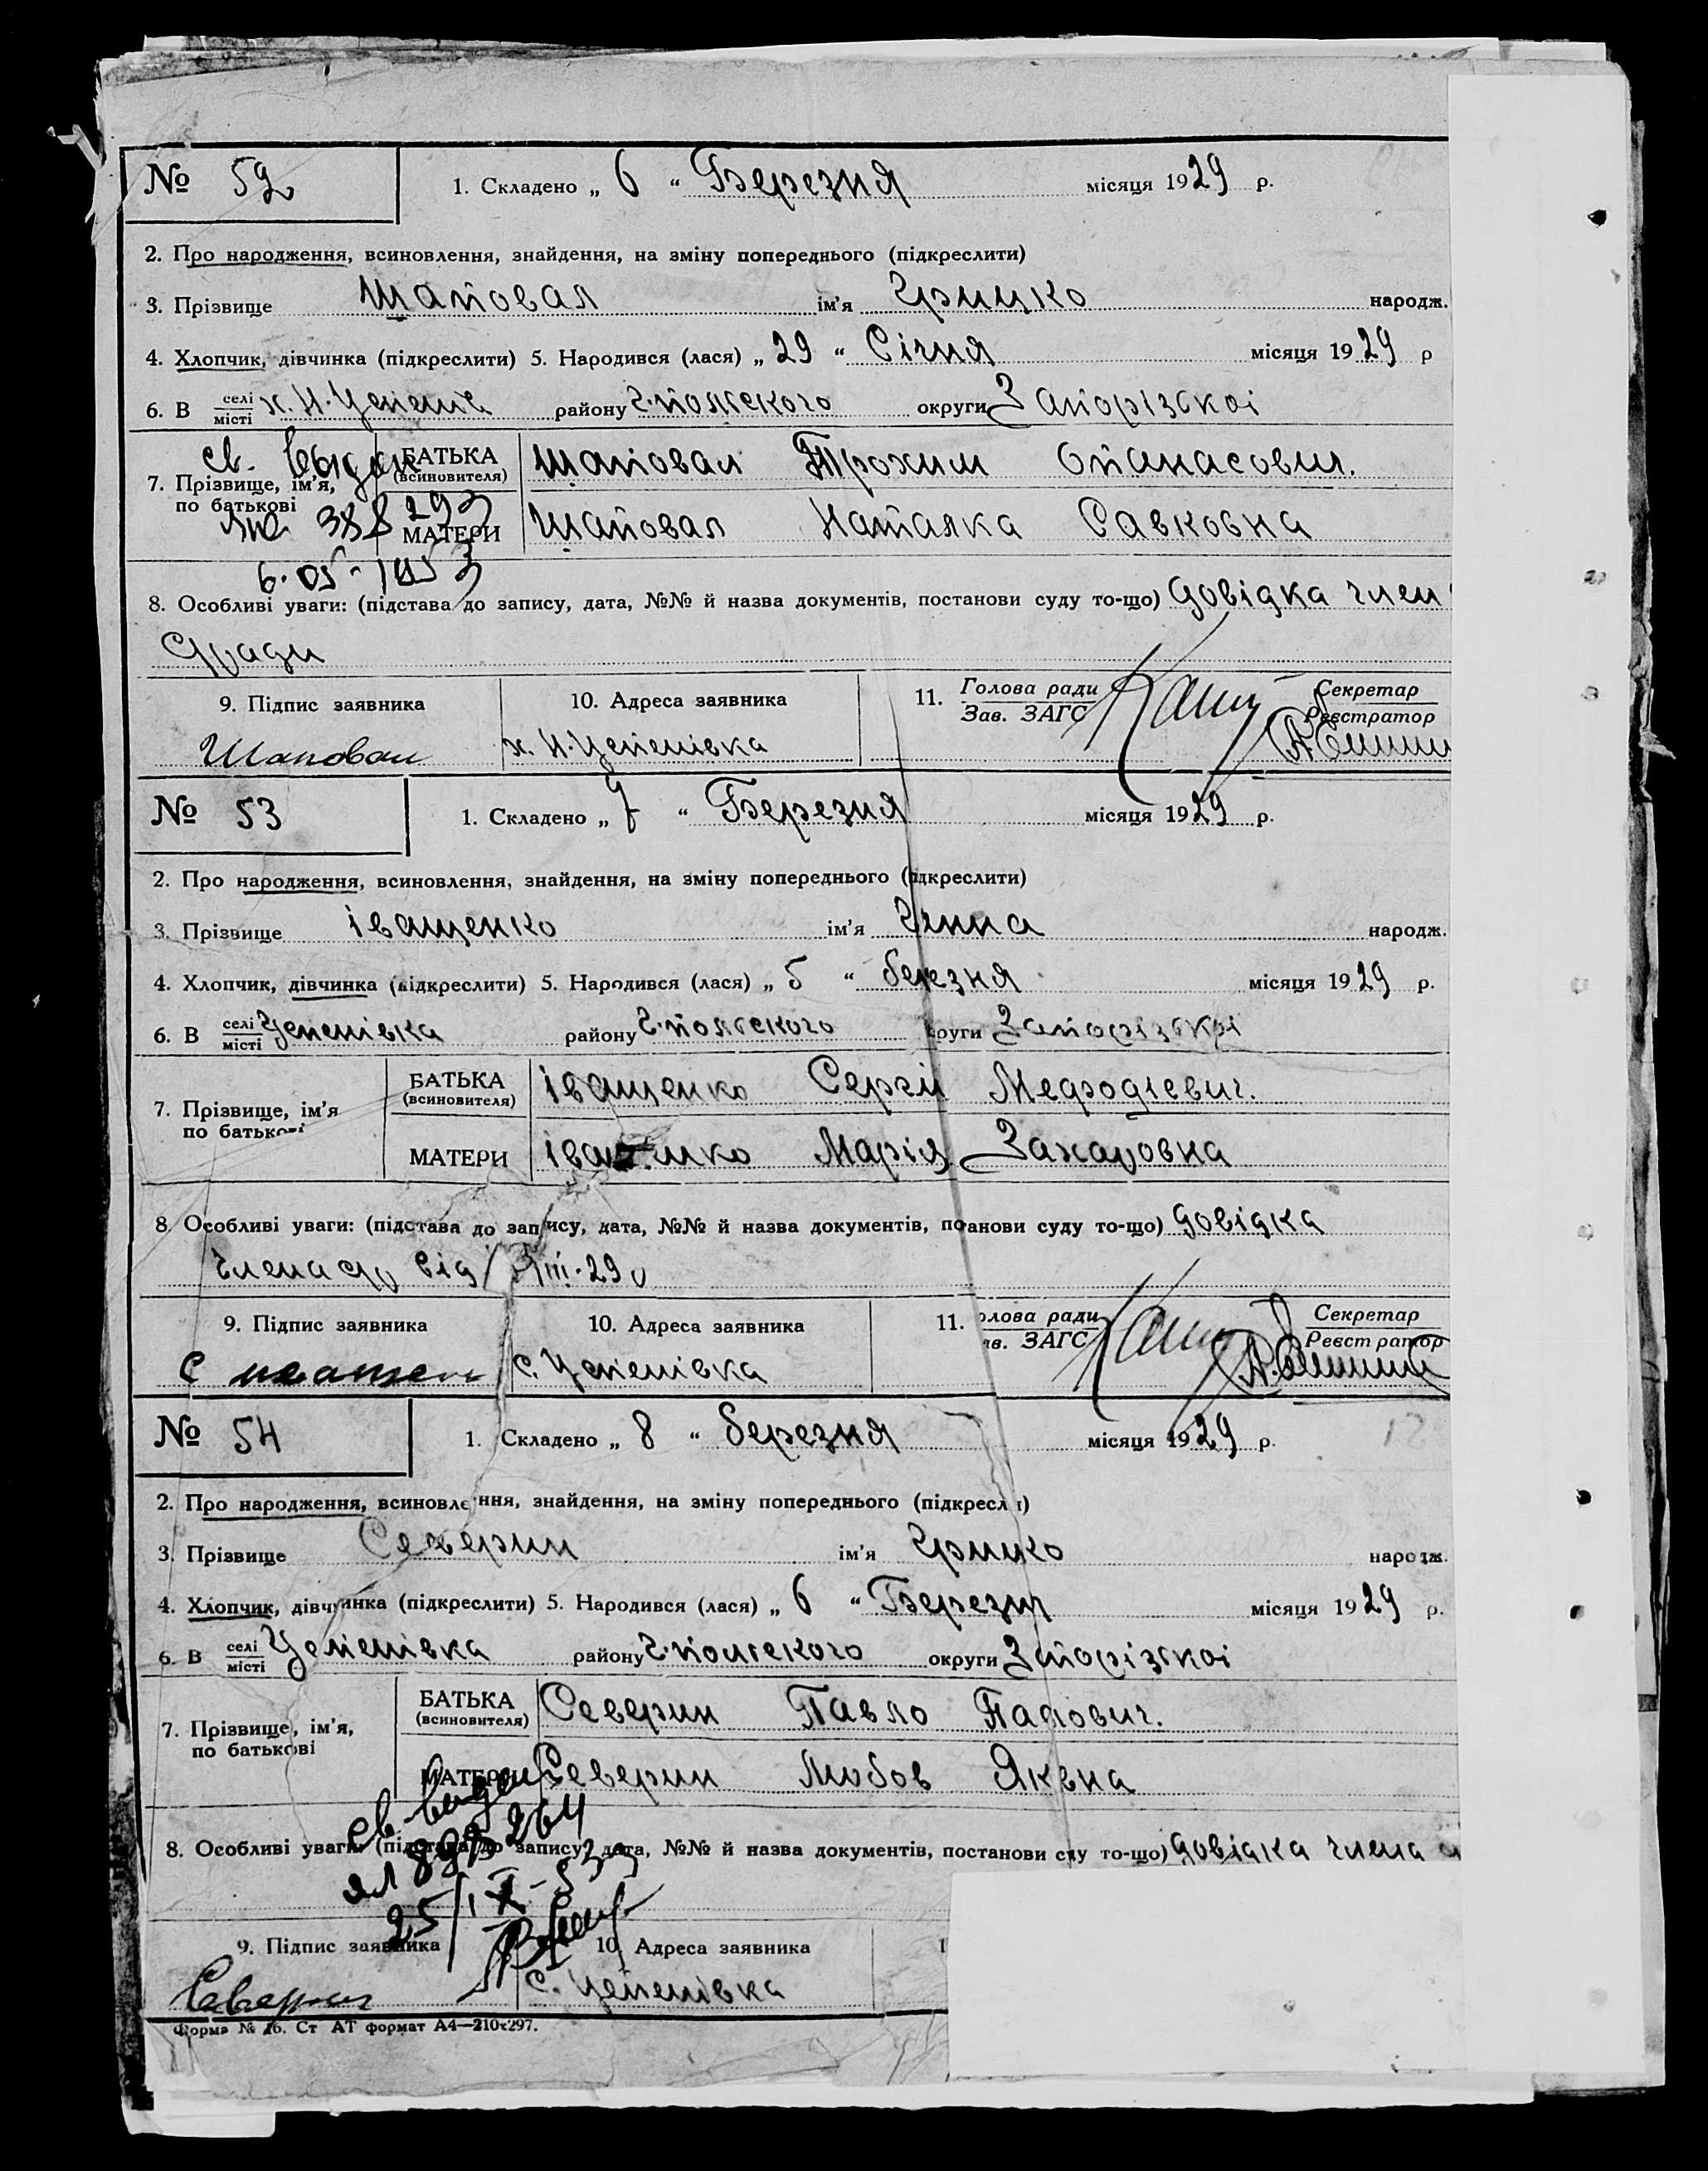 № 52 1. Складено „ 6 “ Березня місяця 1929 р.
2. Про народження, всиновлення, знайдення, на зміну попереднього (підкреслити)
3. Прізвище Шаповал ім’я Грицко народж.
4. Хлопчик, дівчинка (підкреслити) 5. Народився (лася) „ 29 “ Січня місяця 1929 р
6. В селі місті х. Н. району Г.-польского округи Запорізскоі
св.
7. Прізвище, ім’я, по батькові БАТЬКА (всиновителя) Шаповал Трохим Опанасович.
МАТЕРИ Шаповал Наталка Савковна
388293
8. Особливі уваги: (підстава до запису, дата, №№ й назва документів, постанови суду то-що) Довідка член
С/ради
9. Підпис заявника 10. Адреса заявника 11. Голова ради Зав. ЗАГС Секретар Реєстратор
Шаповал х. Н.
№ 53 1. Складено „ 7 “ Березня місяця 1929 р.
2. Про народження, всиновлення, знайдення, на зміну попереднього (підкреслити)
3. Прізвище Іващенко ім’я Ганна народж.
4. Хлопчик, дівчинка (підкреслити) 5. Народився (лася) „ 5 “ березня місяця 1929 р.
6. В селі місті Успенівка району Г.-польского округи Запорізскоі
7. Прізвище, ім’я по батькові БАТЬКА (всиновителя) Іващенко Сергій Мефодіевич.
МАТЕРИ Іващенко Марія Захаровна
8. Особливі уваги: (підстава до запису, дата, №№ й назва документів, постанови суду то-що) Довідка
члена с/р від
9. Підпис заявника 10. Адреса заявника 11. Голова ради Зав. ЗАГС Секретар Реєстратор
С с. Успенівка
№ 54 1. Складено „ 8 “ березня місяця 1929 р.
2. Про народження, всиновлення, знайдення, на зміну попереднього (підкресли
3. Прізвище Северин ім’я Грицко народж.
4. Хлопчик, дівчинка (підкреслити) 5. Народився (лася) „ 6 “ Березня місяця 1929 р.
6. В селі місті Успенівка району Г.-польского округи Запорізскоі
7. Прізвище, ім’я, по батькові БАТЬКА (всиновителя) Северин Павло
МАТЕРИ Северин Любов Яквна
8. Особливі уваги: (підстава до запису, дата, №№ й назва документів, постанови суду то-що) Довідка члена
9. Підпис заявника 10. Адреса заявника 1
Северин с. Успенівка
Форма № 16. Ст АТ формат А4—210х297.